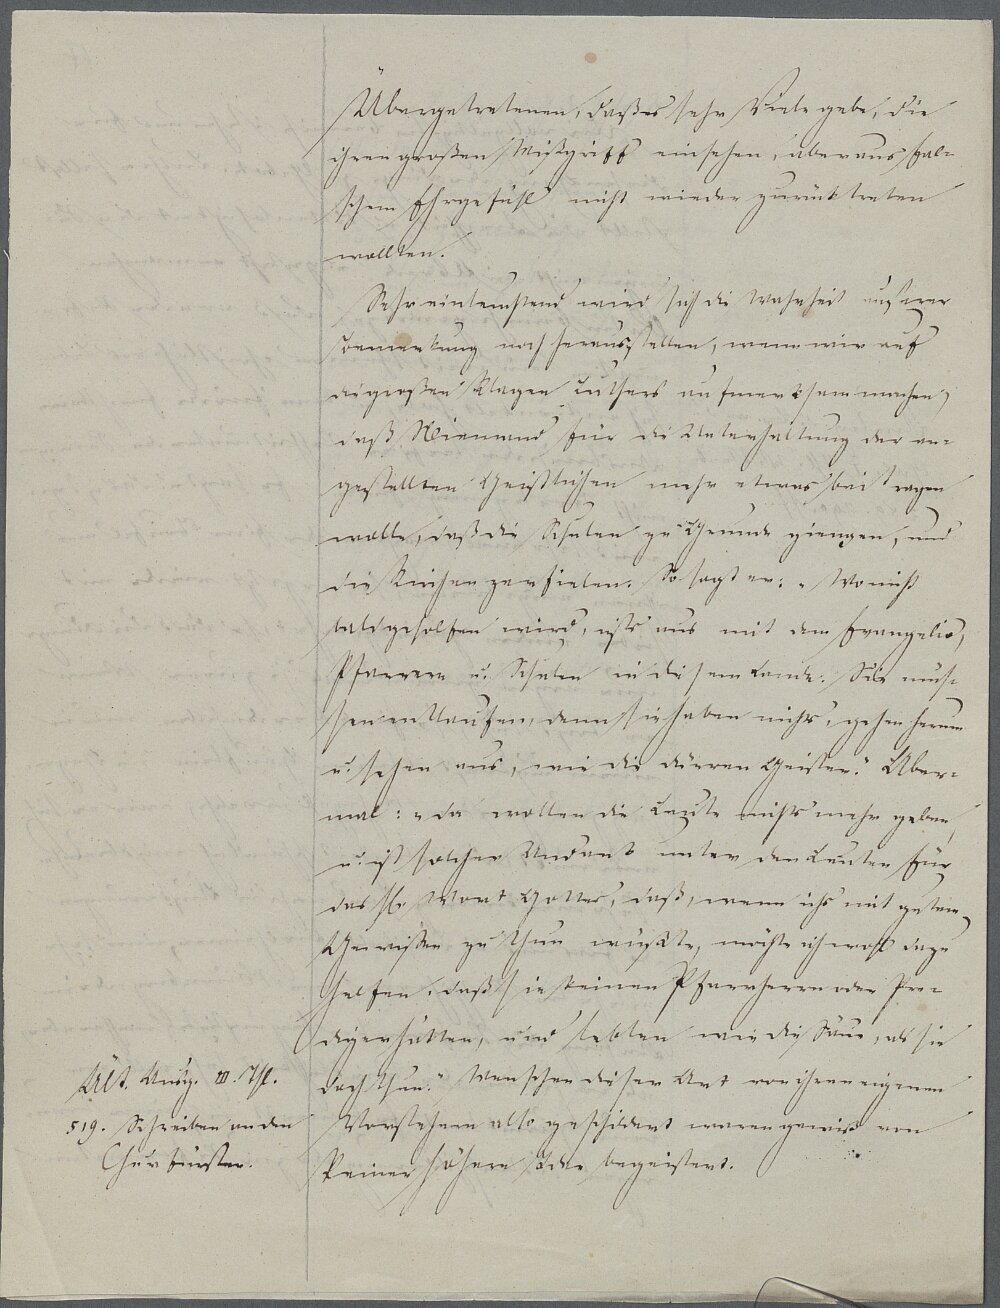 Übergetretenen, daß es sehr Viele gebe, die
ihren großen Mißgriff einsehen, aber aus fal-
schem Ehrgefühl nicht wieder zurücktreten
wollten.
Sehr einleuchtend wird sich die Wahrheit unserer
Bemerkung noch herausstellen, wenn wir auf
die großen Klagen Luthers aufmerksam machen,
daß Niemand für die Unterhaltung der an-
gestellten Geistlichen mehr etwas beitragen
wolle, daß die Schulen zu Grunde giengen, und
die Kirchen zerfielen. So sagt er: „Wo nicht
bald geholfen wird, ists aus mit dem Evangelio,
Pfarrern u. Schulen in diesem Lande. Sie müs-
sen entlaufen, denn sie haben nichts, gehen herum
u. sehen aus, wie die dürren Geister." Aber-
mal: „da wollen die Leute nichts mehr geben,
u. ist solcher Undank unter den Leuten für
das hl. Wort Gottes, daß, wenn ichs mit gutem
Gewissen zu thun wußte, möchte ich wohl dazu
helfen, daß sie keinen Pfarrherrn oder Pre-
diger hätten, und lebten wie die Säue, als sie
doch thun." Menschen dieser Art von ihren eigenen
Vorstehern also geschildert waren gewiß von
keiner höhern Idee begeistert.
Alt. Ausg. III. Thl.
519. Schreiben an den
Churfürsten.